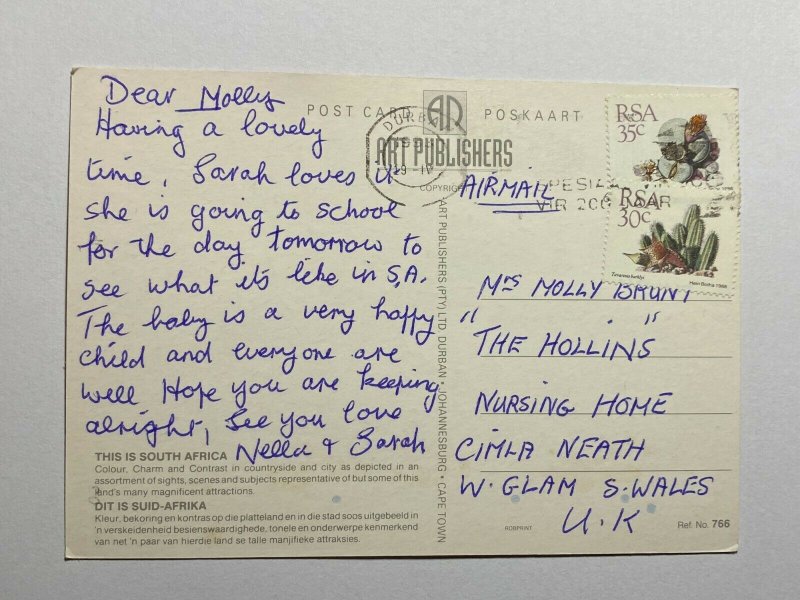 Dear Molly
Having a lovely
time, Sarah loves it
she is going to school
for the day tomorrow to
see what its like in S.A.
The baby is a very happy
child and everyone are
well Hope you are keeping
alright, See you love
Nella + Sarah
THIS IS SOUTH AFRICA
Colour, Charm and Contrast in countryside and city as depicted in an
assortment of sights, scenes and subjects representative of but some of this
land's many magnificent attractions.
DIT IS SUID-AFRIKA
Kleur, bekoring en kontras op die platteland en in die stad soos uitgebeeld in
'n verskeidenheid besienswaardighede, tonele en onderwerpe kenmerkend
van net 'n paar van hierdie land se talle manjifieke attraksies.
POST CARD
POSKAART
ART PUBLISHERS
COPYRIGHT
ART PUBLISHERS (PTY) LTD DURBAN • JOHANNESBURG • CAPE TOWN
DURBAN
RSA
35c
RSA
30c
AIRMAIL
Mrs MOLLY BRUNT
"THE HOLLINS"
NURSING HOME
CIMLA NEATH
W. GLAM S. WALES
U.K
ROBPRINT
Ref. No. 766